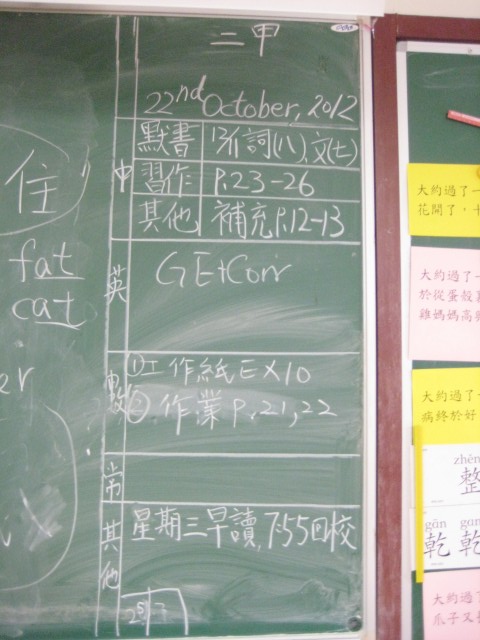 二甲
22nd October, 2012
中
默書 13/11詞(八)、文(七)
習作 P.23-26
其他 補充P.12-13
英
GE+Corr
數
①工作紙EX10
②作業P.21,22
常
其他
星期三早讀,7:55回校
住
fat
cat
er
大約過了一
花開了，十
大約過了一
於從蛋殼裏
雞媽媽高興
大約過了一
病終於好
zhěn
整
gān gān
乾 乾
大約過了
爪子又